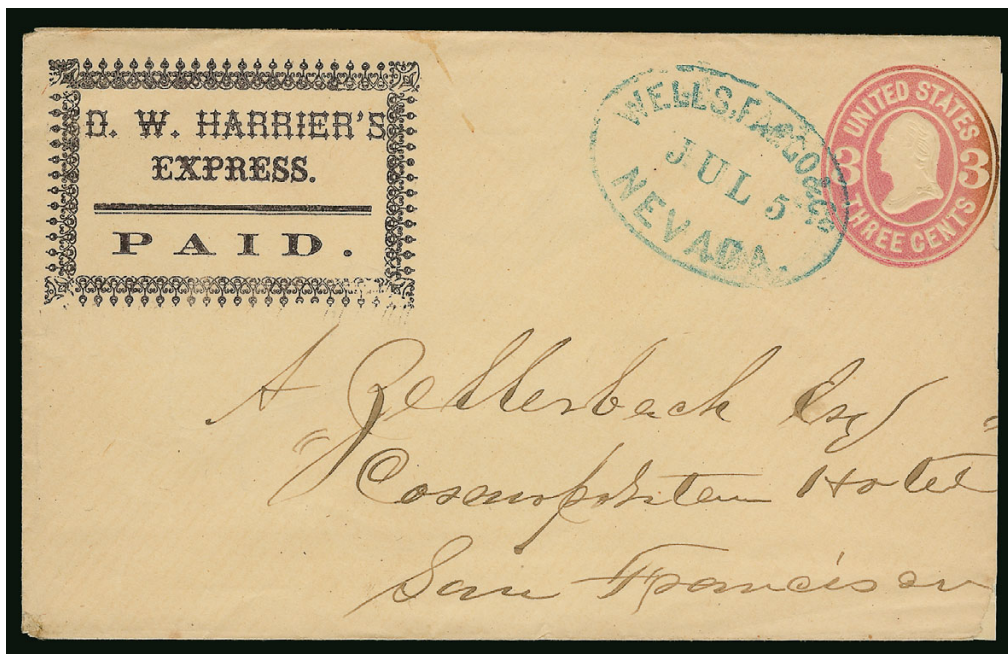 D. W. HARRIER'S
EXPRESS.
PAID.
WELLS, FARGO & Co.
JUL 5
NEVADA.
UNITED STATES
3 3
THREE CENTS
A Zellerbach Esq
Cosmopolitan Hotel
San Francisco